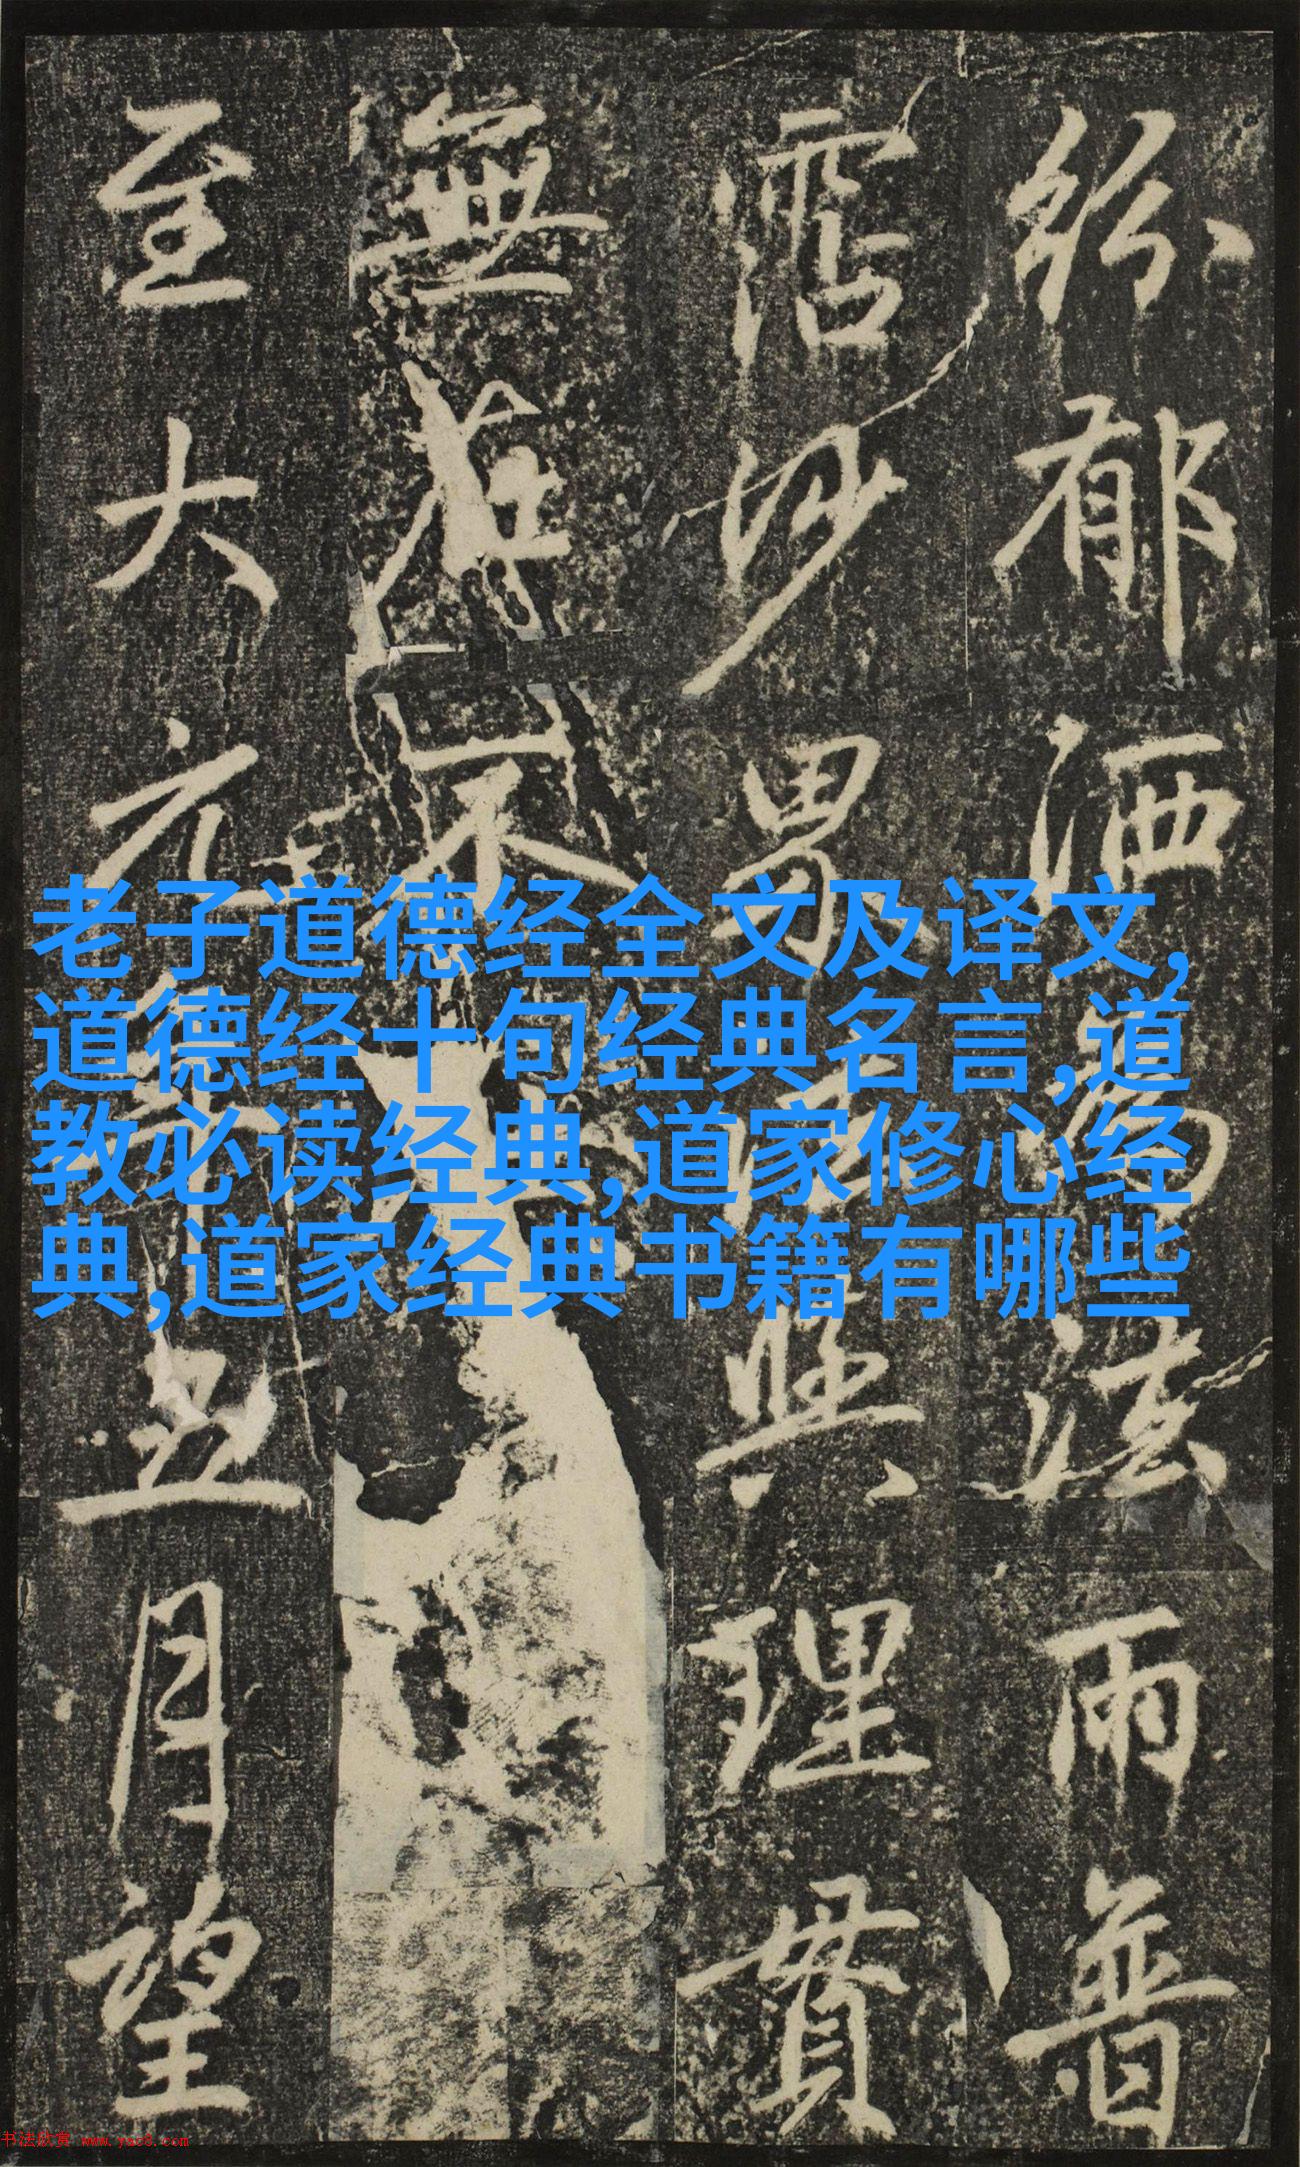 紛郁洒為法雨普
霑沙界理貫
無不
至大元年五月望
老子道德经全文及译文,
道德经十句经典名言,道
教必读经典,道家修心经
典,道家经典书籍有哪些
书法欣赏 www.yac8.com